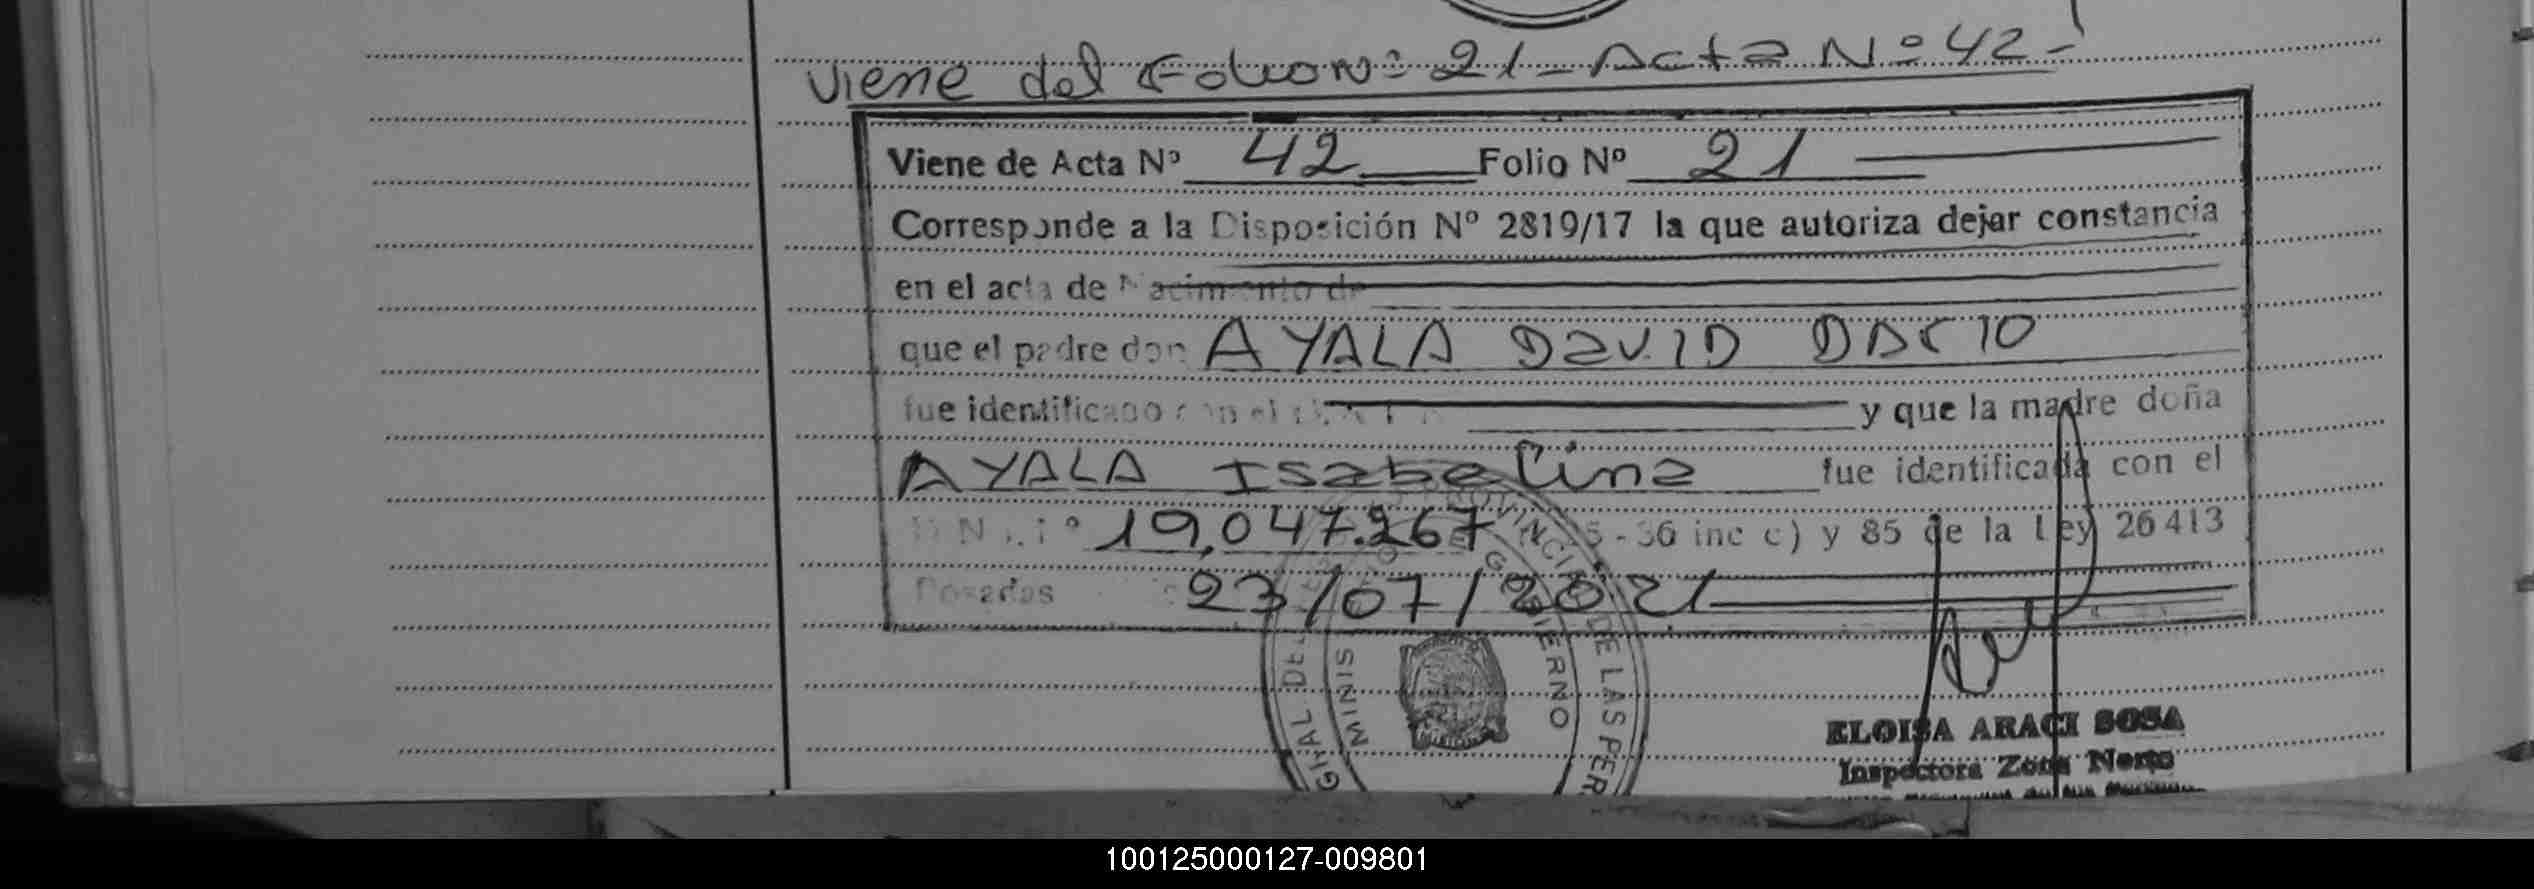 viene del Folio Nº 21 - Acta Nº 42 -
Viene de Acta Nº 42 Folio Nº 21
Corresponde a la Disposición Nº 2819/17 la que autoriza dejar constancia
en el acta de Nacimiento de
que el padre don AYALA DAVID DARIO
fue identificado con el y que la madre doña
AYALA Isabelina fue identificada con el
D.N.I. Nº 19.047.267 - 36 inc c) y 85 de la Ley 26413
Posadas 23/07/2021
PROVINCIAL DE LAS PER
MINIS GOBIERNO
ELOISA ARACI SOSA
Inspectora Zona Norte
100125000127-009801